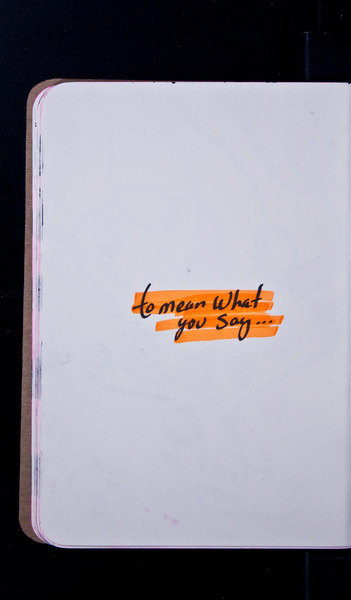 to mean what
you say...